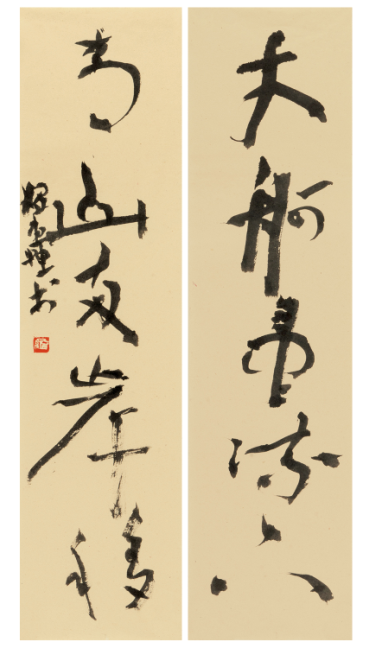 大舸中流下
青山两岸移
书